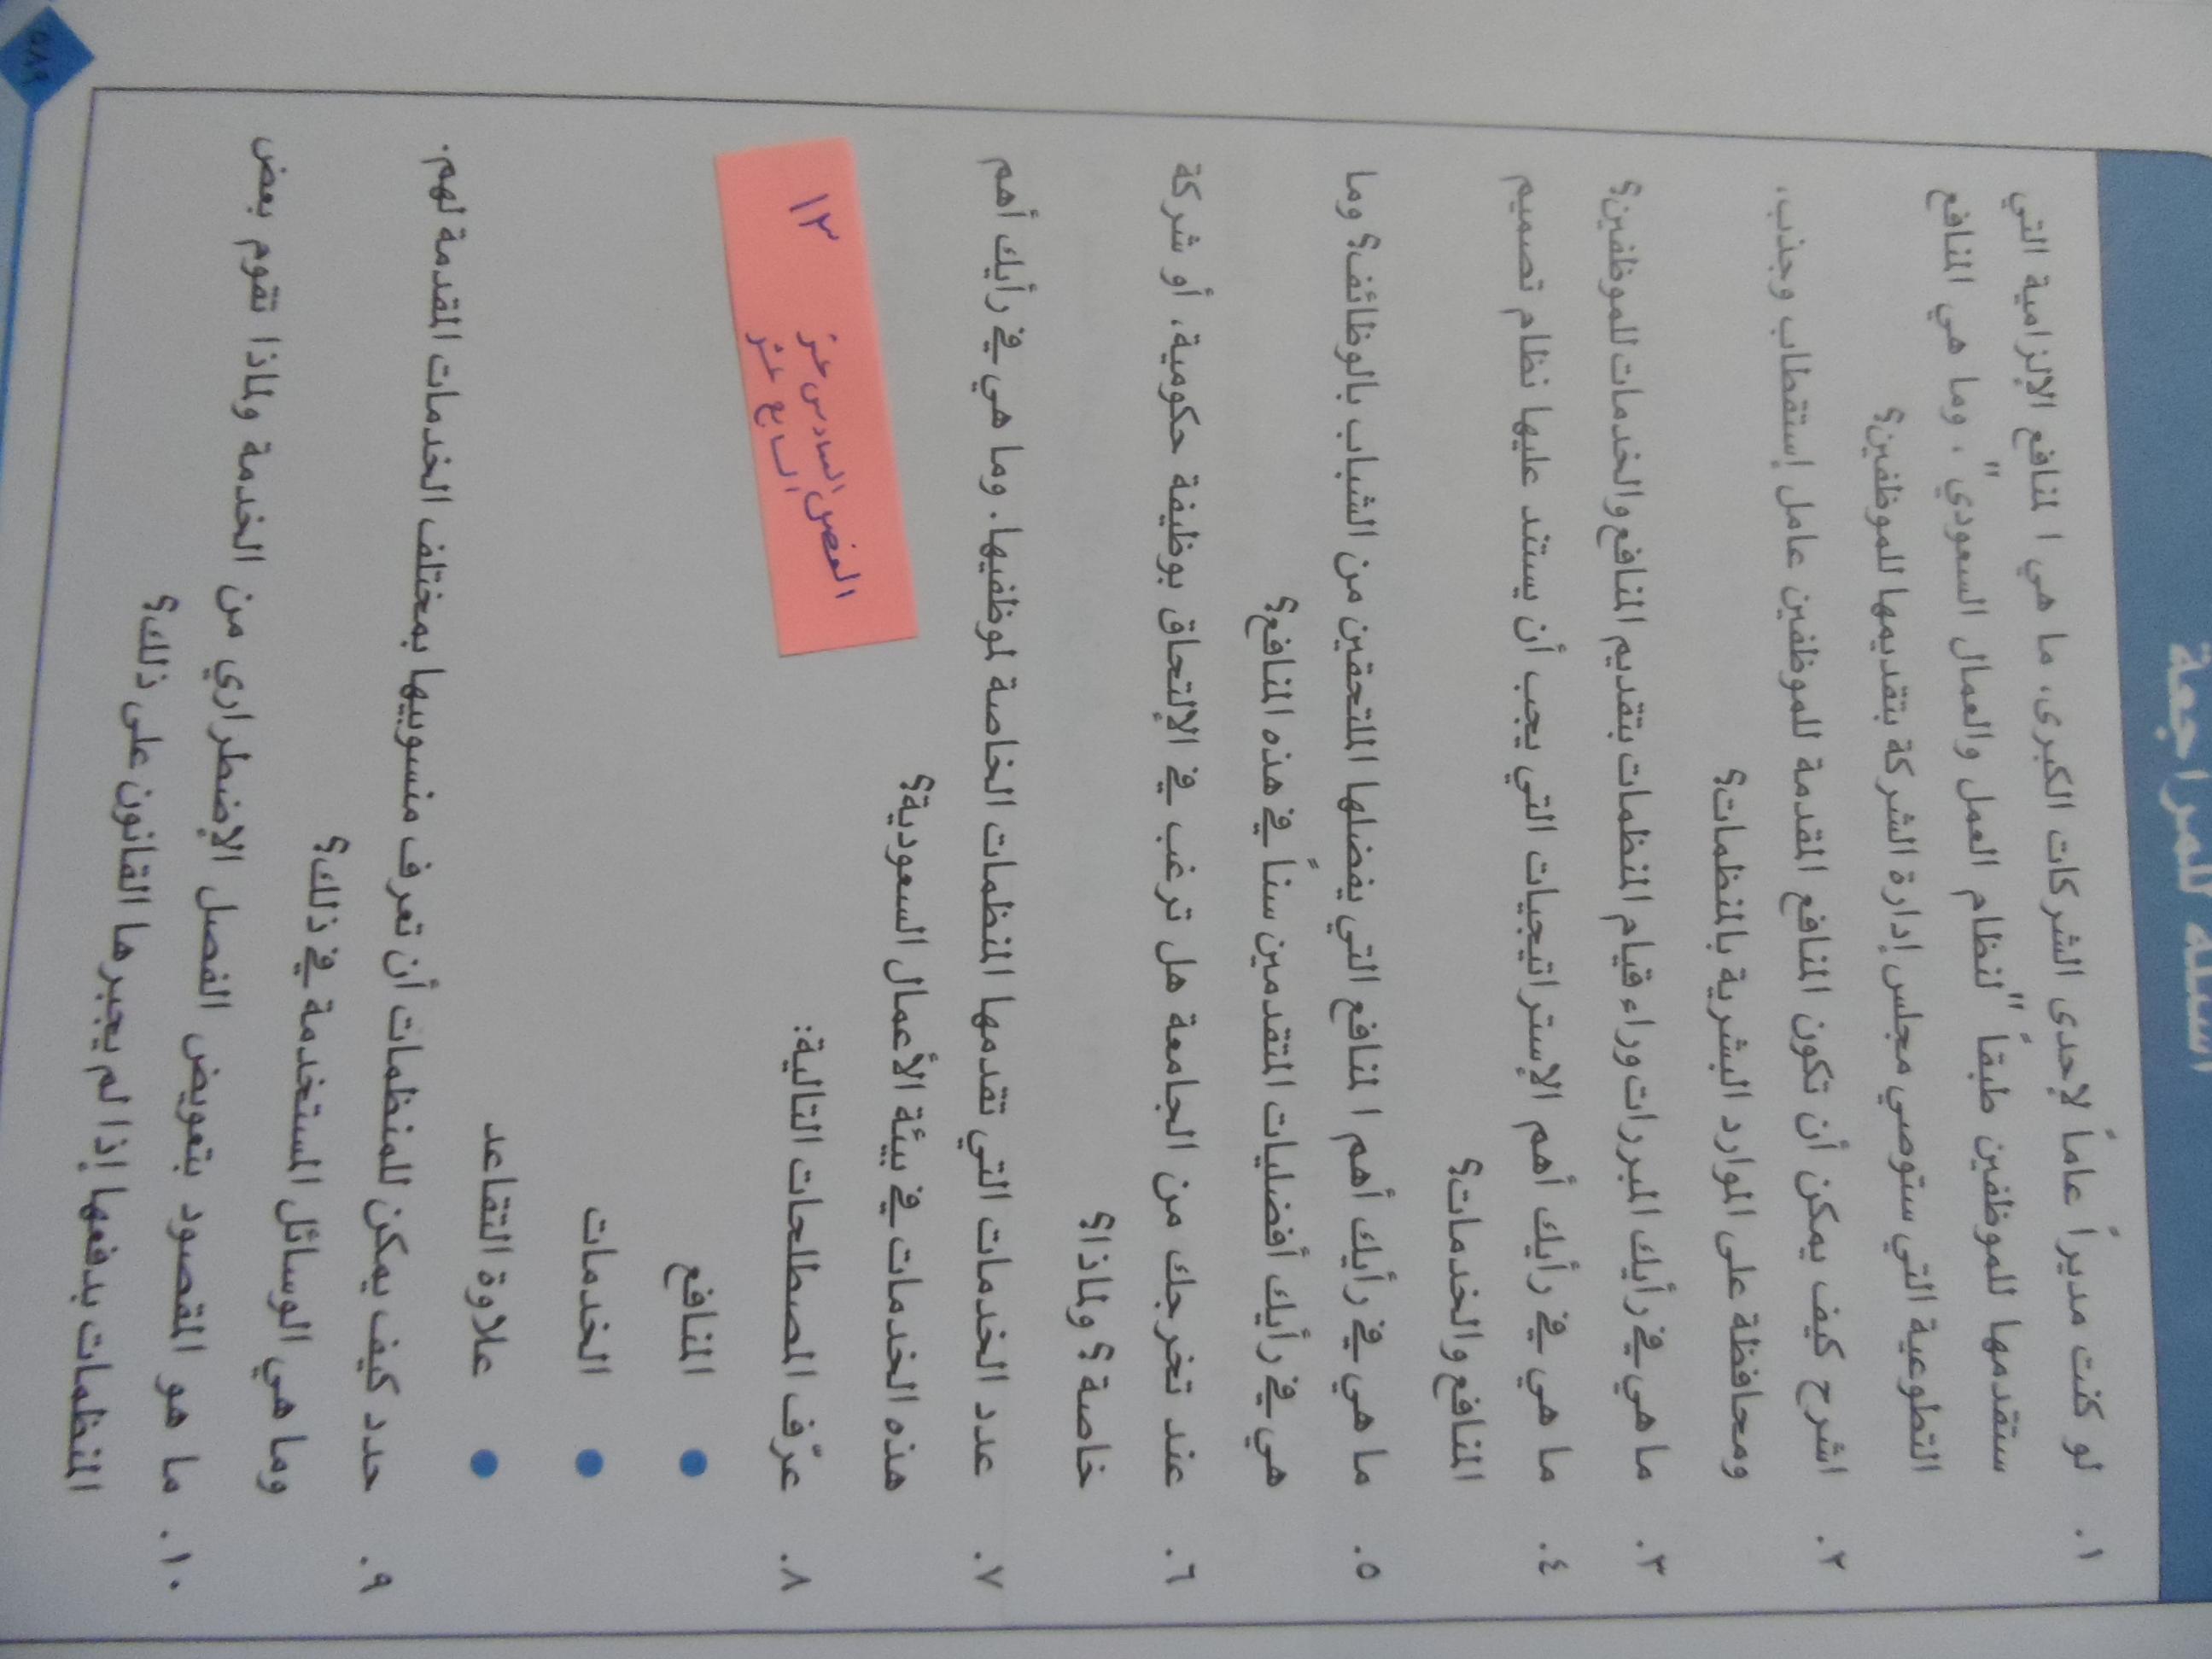 أسئلة للمراجعة
١. لو كنت مديراً عاماً لإحدى الشركات الكبرى، ما هي المنافع الإلزامية التي
ستقدمها للموظفين طبقاً "لنظام العمل والعمال السعودي"، وما هي المنافع
التطوعية التي ستوصي مجلس إدارة الشركة بتقديمها للموظفين؟
٢. اشرح كيف يمكن أن تكون المنافع المقدمة للموظفين عامل إستقطاب وجذب،
ومحافظة على الموارد البشرية بالمنظمات؟
٣. ما هي في رأيك المبررات وراء قيام المنظمات بتقديم المنافع والخدمات للموظفين؟
٤. ما هي في رأيك أهم الإستراتيجيات التي يجب أن يستند عليها نظام تصميم
المنافع والخدمات؟
٥. ما هي في رأيك أهم المنافع التي يفضلها الملتحقين من الشباب بالوظائف؟ وما
هي في رأيك أفضليات المتقدمين سناً في هذه المنافع؟
٦. عند تخرجك من الجامعة هل ترغب في الإلتحاق بوظيفة حكومية، أو شركة
خاصة؟ ولماذا؟
٧. عدد الخدمات التي تقدمها المنظمات الخاصة لموظفيها. وما هي في رأيك أهم
هذه الخدمات في بيئة الأعمال السعودية؟
٨. عرّف المصطلحات التالية:
● المنافع
● الخدمات
● علاوة التقاعد
١٣
الفصل السادس عشر
السابع عشر
٩. حدد كيف يمكن للمنظمات أن تعرف منسوبيها بمختلف الخدمات المقدمة لهم.
وما هي الوسائل المستخدمة في ذلك؟
١٠. ما هو المقصود بتعويض الفصل الإضطراري من الخدمة ولماذا تقوم بعض
المنظمات بدفعها إذا لم يجبرها القانون على ذلك؟
٥٨٩